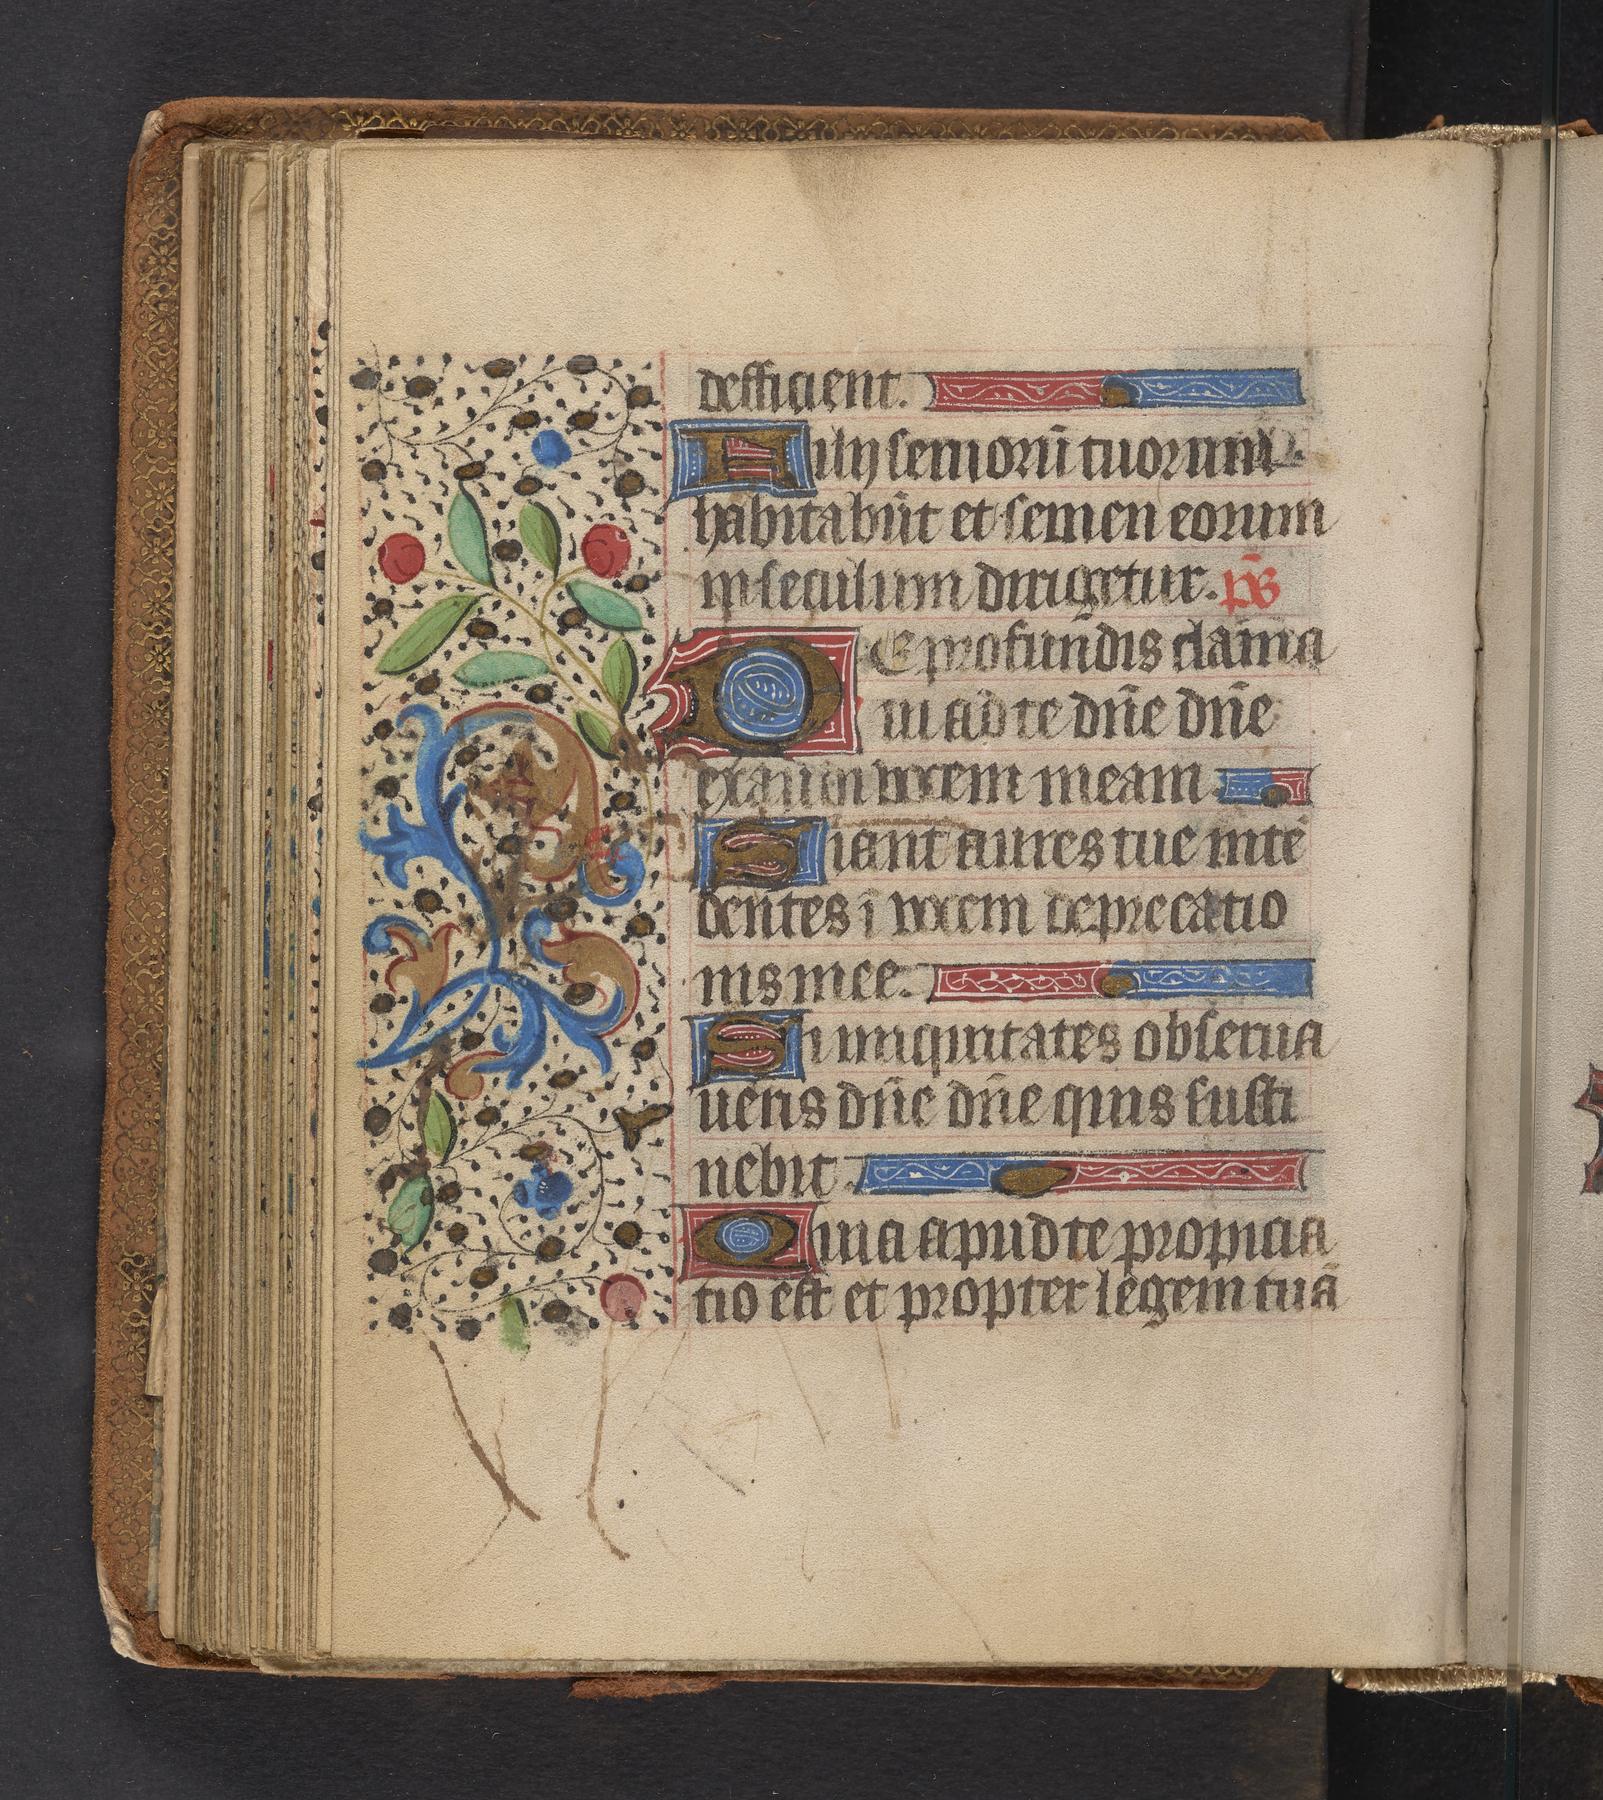 defficient.
Filij seruorũ tuorum
habitabũt et semen eorum
in seculum dirigetur. p̃s
De profundis clama
ui ad te dñe dñe
exaudi vocem meam
Fiant aures tue inte
dentes ĩ vocem deprecatio
nis mee.
Si iniquitates obserua
ueris dñe dñe quis susti
nebit.
Quia apud te propicia
tio est et propter legem tuã